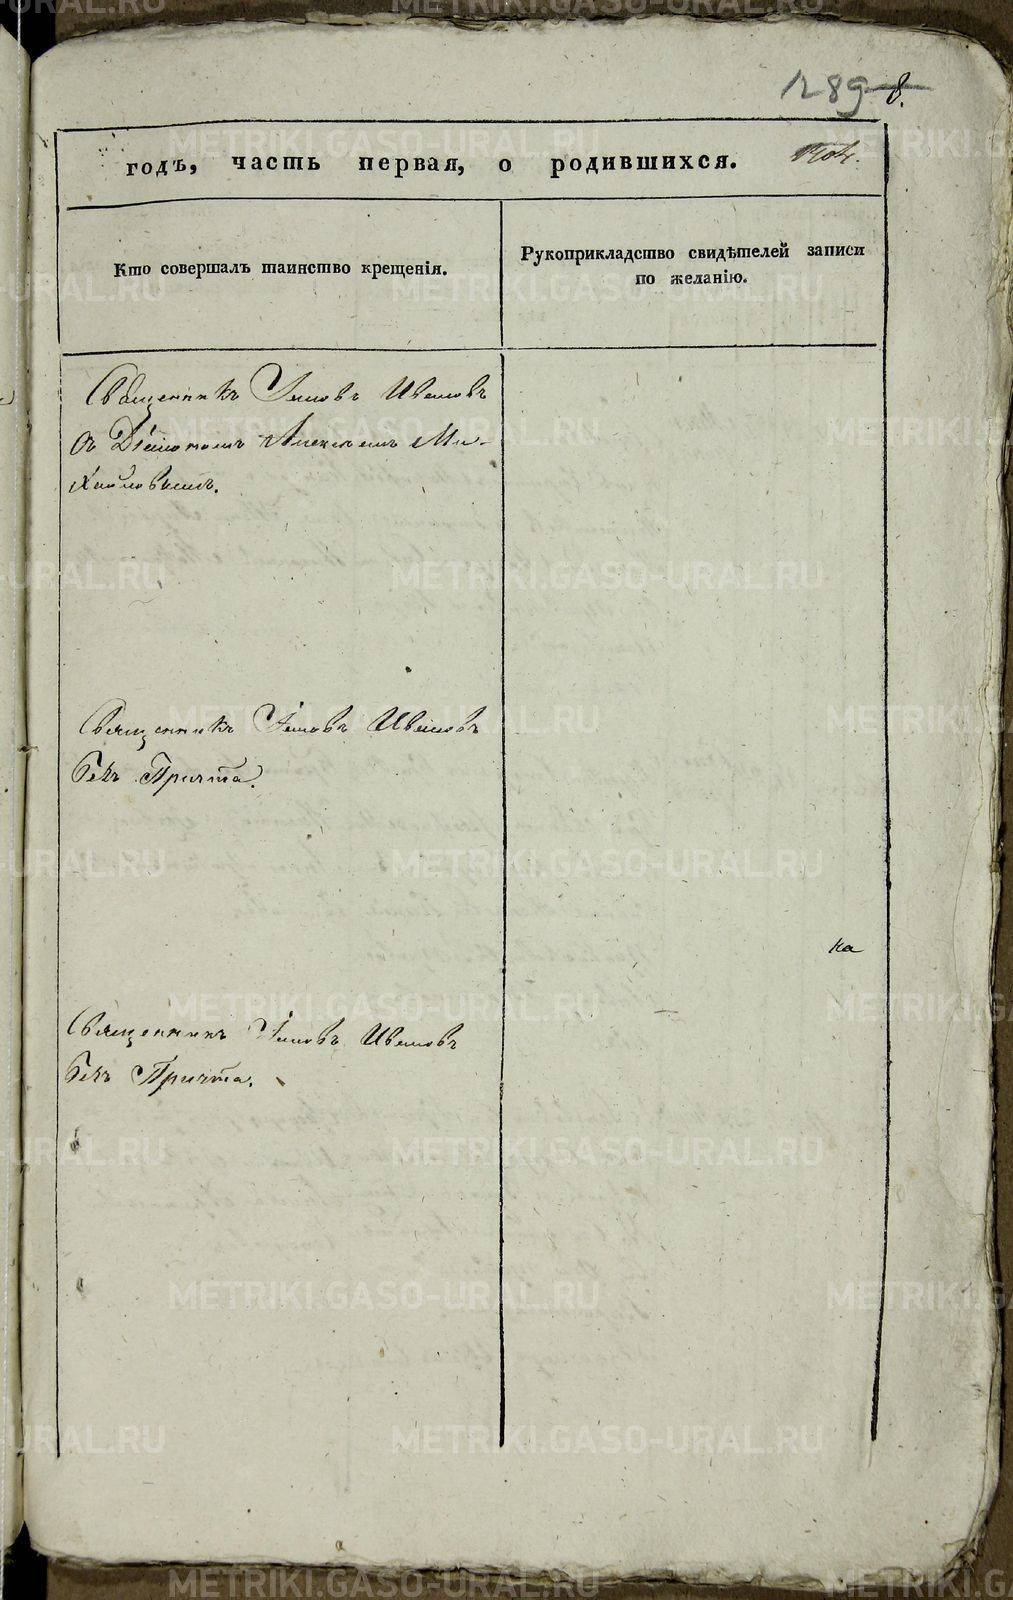 1289 8.
годъ, часть первая, о родившихся.
Кто совершалъ таинство крещенія.
Рукоприкладство свидѣтелей записи
по желанію.
Священникъ Іаковъ Ивановъ
съ Діакономъ Алексѣемъ Ми-
хайловымъ.
Священникъ Іаковъ Ивановъ
безъ Причта.
ка
Священникъ Іаковъ Ивановъ
безъ Причта.
METRIKI.GASO-URAL.RU